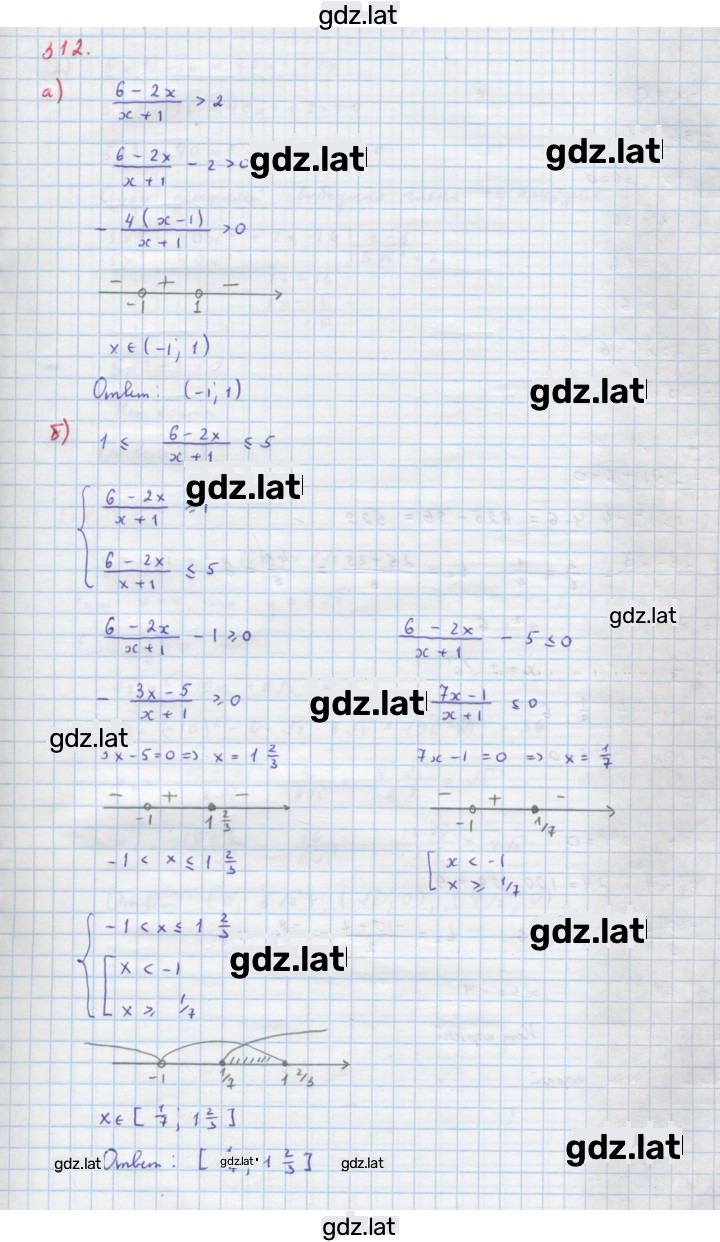 gdz.lat
312.
а) (6 - 2x)/(x + 1) > 2
(6 - 2x)/(x + 1) - 2 > gdz.lat
gdz.lat
- 4(x - 1)/(x + 1) > 0
- + -
-1 1
x ∈ (-1; 1)
Ответ: (-1; 1)
gdz.lat
б) 1 ≤ (6 - 2x)/(x + 1) ≤ 5
gdz.lat
{ (6 - 2x)/(x + 1) ≥ 1
(6 - 2x)/(x + 1) ≤ 5
gdz.lat
(6 - 2x)/(x + 1) - 1 ≥ 0 (6 - 2x)/(x + 1) - 5 ≤ 0
- (3x - 5)/(x + 1) ≥ 0 gdz.lat (7x - 1)/(x + 1) ≤ 0
gdz.lat
x - 5 = 0 => x = 1 2/3 7x - 1 = 0 => x = 1/7
- + - - + -
-1 1 2/3 -1 1/7
-1 < x ≤ 1 2/3 [ x < -1
x ≥ 1/7
{ -1 < x ≤ 1 2/3 gdz.lat
[ x < -1 gdz.lat
x ≥ 1/7
-1 1/7 1 2/3
x ∈ [ 1/7; 1 2/3 ]
gdz.lat
gdz.lat Ответ: [ gdz.lat ; 1 2/3 ] gdz.lat
gdz.lat